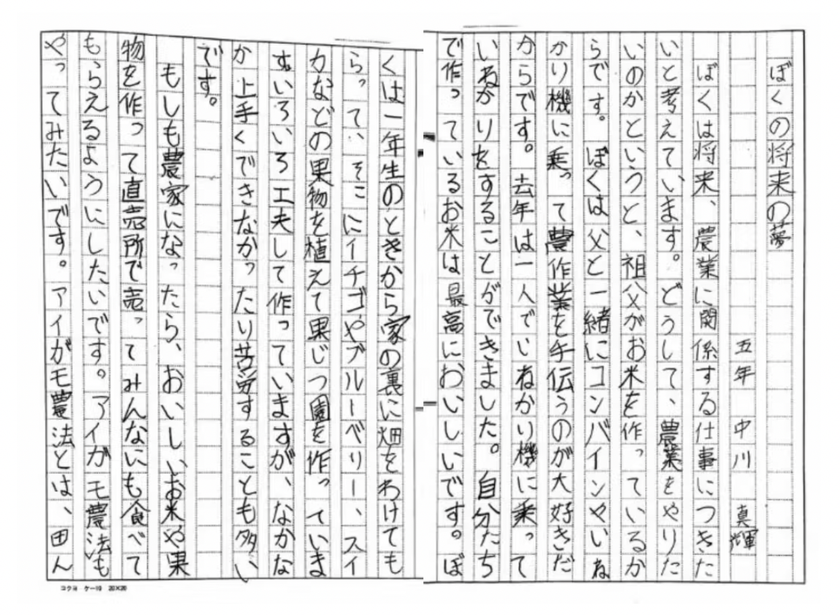 ぼくの将来の夢
五年　中川　真輝
ぼくは将来、農業に関係する仕事につきた
いと考えています。どうして、農業をやりた
いのかというと、祖父がお米を作っているか
らです。ぼくは父と一緒にコンバインやいね
かり機に乗って農作業を手伝うのが大好きだ
からです。去年は一人でいねかり機に乗って
いねかりをすることができました。自分たち
で作っているお米は最高においしいです。ぼ
くは一年生のときから家の裏に畑をわけても
らって、そこにイチゴやブルーベリー、スイ
カなどの果物を植えて果じつ園を作っていま
すいろいろ工夫して作っていますが、なかな
か上手くできなかったり苦労することも多い
です。
もしも農家になったら、おいしいお米や果
物を作って直売所で売ってみんなにも食べて
もらえるようにしたいです。アイガモ農法も
やってみたいです。アイガモ農法とは、田ん
コクヨ　ケー10　20×20